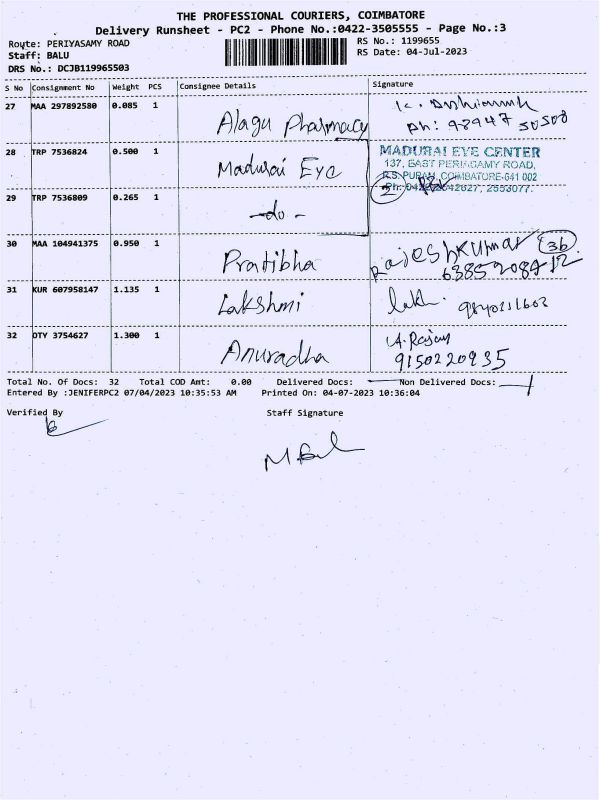 THE PROFESSIONAL COURIERS, COIMBATORE
Delivery Runsheet - PC2 - Phone No.:0422-3505555 - Page No.:3
Route: PERIYASAMY ROAD
RS No.: 1199655
Staff: BALU
RS Date: 04-Jul-2023
DRS No.: DCJB119965503
S No Consignment No Weight PCS Consignee Details Signature
27 MAA 297892580 0.085 1 Alagu Pharmacy
Ph: 98947 50508
28 TRP 7536824 0.500 1 Madurai Eye
MADURAI EYE CENTER
137, EAST PERIASAMY ROAD,
R.S. PURAM, COIMBATORE-641 002
29 TRP 7536809 0.265 1 -do-
2
30 MAA 104941375 0.950 1 Pratibha RajeshKumar 36
31 KUR 607958147 1.135 1 Lakshmi
32 OTY 3754627 1.300 1 Anuradha A. Rajan
9150220935
Total No. Of Docs: 32 Total COD Amt: 0.00 Delivered Docs: Non Delivered Docs:
Entered By :JENIFERPC2 07/04/2023 10:35:53 AM Printed On: 04-07-2023 10:36:04
Verified By Staff Signature